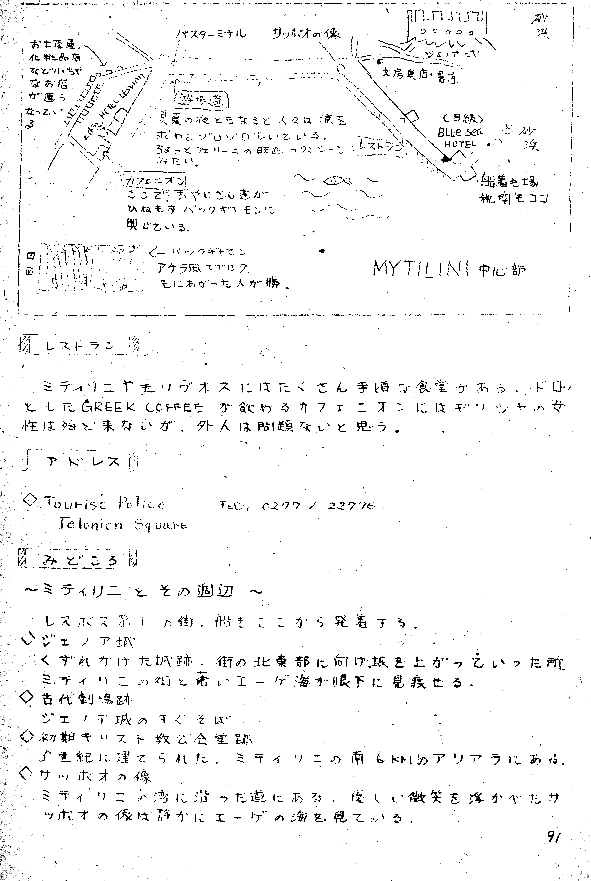 バスターミナル サッポオの像
お土産屋、
化粧品店
など小さな
なお店
が並ぶ
文房具店・書店
(目線)
BLUE SEA
HOTEL
砂
浜
砂
浜
散歩道
真夏の夜ともなると人々は涼を
レストラン
船着き場
税関モココ
カフェニオン
ここで、おやじさん達が
ひねもすバックギャモンに
興じている。
←バックギャモン
アチラ風スゴロク。
先にあがった人が勝。
MYTILINI 中心部
レストラン
ミティリニやモリヴォスにはたくさん手頃な食堂がある。ドロッ
としたGREEK COFFEEが飲めるカフェニオンにはギリシャの女
性は殆ど来ないが、外人は問題ないと思う。
アドレス
◇ Tourist Police TEL. 0277 / 22776
Telonion Square
みどころ
〜ミティリニとその周辺〜
レスボス第1の街。船もここから発着する。
◇ジェノア城
くずれかけた城跡。街の北東部に向け坂を上がっていった所
ミティリニの街と青いエーゲ海が眼下に見渡せる。
◇古代劇場跡
ジェノア城のすぐそば
◇初期キリスト教公会堂跡
5世紀に建てられた。ミティリニの南6KMのアリアラにある。
◇サッポオの像
ミティリニの湾に沿った道にある。優しい微笑を浮かべたサ
ッポオの像は静かにエーゲの海を見ている。
91